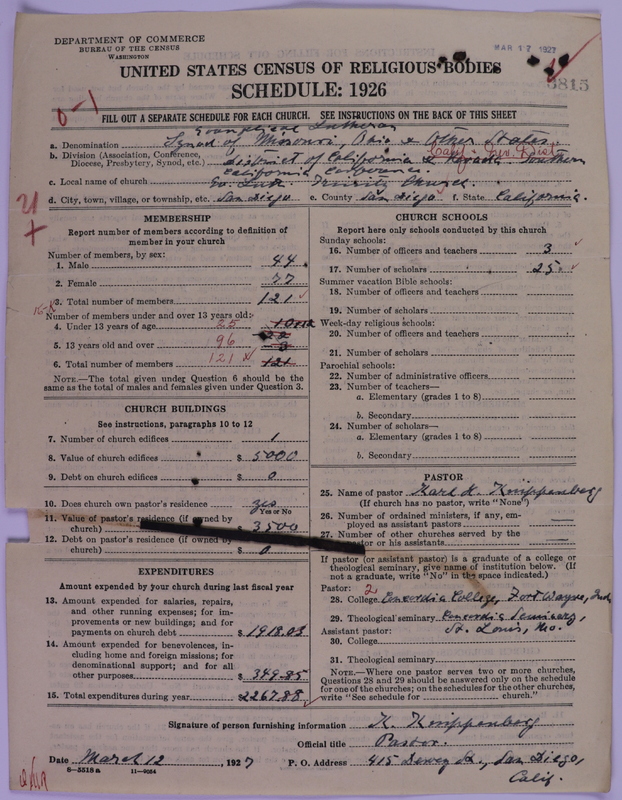 DEPARTMENT OF COMMERCE
BUREAU OF THE CENSUS
WASHINGTON
MAR 17 1927
UNITED STATES CENSUS OF RELIGIOUS BODIES
SCHEDULE: 1926
3815
0-1
FILL OUT A SEPARATE SCHEDULE FOR EACH CHURCH. SEE INSTRUCTIONS ON THE BACK OF THIS SHEET
Evangelical Lutheran
a. Denomination Synod of Missouri, Ohio & Other States
b. Division (Association, Conference, Diocese, Presbytery, Synod, etc.) District of California & Nevada Southern
California Conference.
c. Local name of church Ev. Luth. Trinity Church
d. City, town, village, or township, etc. San Diego e. County San Diego f. State California.
MEMBERSHIP
Report number of members according to definition of
member in your church
Number of members, by sex:
1. Male 44
2. Female 77
3. Total number of members 121
Number of members under and over 13 years old:
4. Under 13 years of age 25
5. 13 years old and over 96
6. Total number of members 121 121
NOTE.—The total given under Question 6 should be the
same as the total of males and females given under Question 3.
CHURCH BUILDINGS
See instructions, paragraphs 10 to 12
7. Number of church edifices 1
8. Value of church edifices $ 5000
9. Debt on church edifices $ 0
10. Does church own pastor's residence yes
Yes or No
11. Value of pastor's residence (if owned by
church) $ 3500
12. Debt on pastor's residence (if owned by
church) $ 0
EXPENDITURES
Amount expended by your church during last fiscal year
13. Amount expended for salaries, repairs,
and other running expenses; for im-
provements or new buildings; and for
payments on church debt $ 1918.03
14. Amount expended for benevolences, in-
cluding home and foreign missions; for
denominational support; and for all
other purposes $ 349.85
15. Total expenditures during year $ 2267.88
CHURCH SCHOOLS
Report here only schools conducted by this church
Sunday schools:
16. Number of officers and teachers 3
17. Number of scholars 25
Summer vacation Bible schools:
18. Number of officers and teachers
19. Number of scholars
Week-day religious schools:
20. Number of officers and teachers
21. Number of scholars
Parochial schools:
22. Number of administrative officers
23. Number of teachers—
a. Elementary (grades 1 to 8)
b. Secondary
24. Number of scholars—
a. Elementary (grades 1 to 8)
b. Secondary
PASTOR
25. Name of pastor Karl H. Knippenberg
(If church has no pastor, write "None")
26. Number of ordained ministers, if any, em-
ployed as assistant pastors
27. Number of other churches served by the
pastor or his assistants
If pastor (or assistant pastor) is a graduate of a college or
theological seminary, give name of institution below. (If
not a graduate, write "No" in the space indicated.)
Pastor: 2
28. College Concordia College, Fort Wayne, Ind
29. Theological seminary Concordia Seminary,
Assistant pastor: St. Louis, Mo.
30. College
31. Theological seminary
NOTE.—Where one pastor serves two or more churches,
Questions 28 and 29 should be answered only on the schedule
for one of the churches; on the schedules for the other churches,
write "See schedule for church."
Signature of person furnishing information K. Knippenberg
Official title Pastor.
Date March 12, 1927 P. O. Address 415 Dewey St., San Diego,
Calif.
8—5518a 11—9064